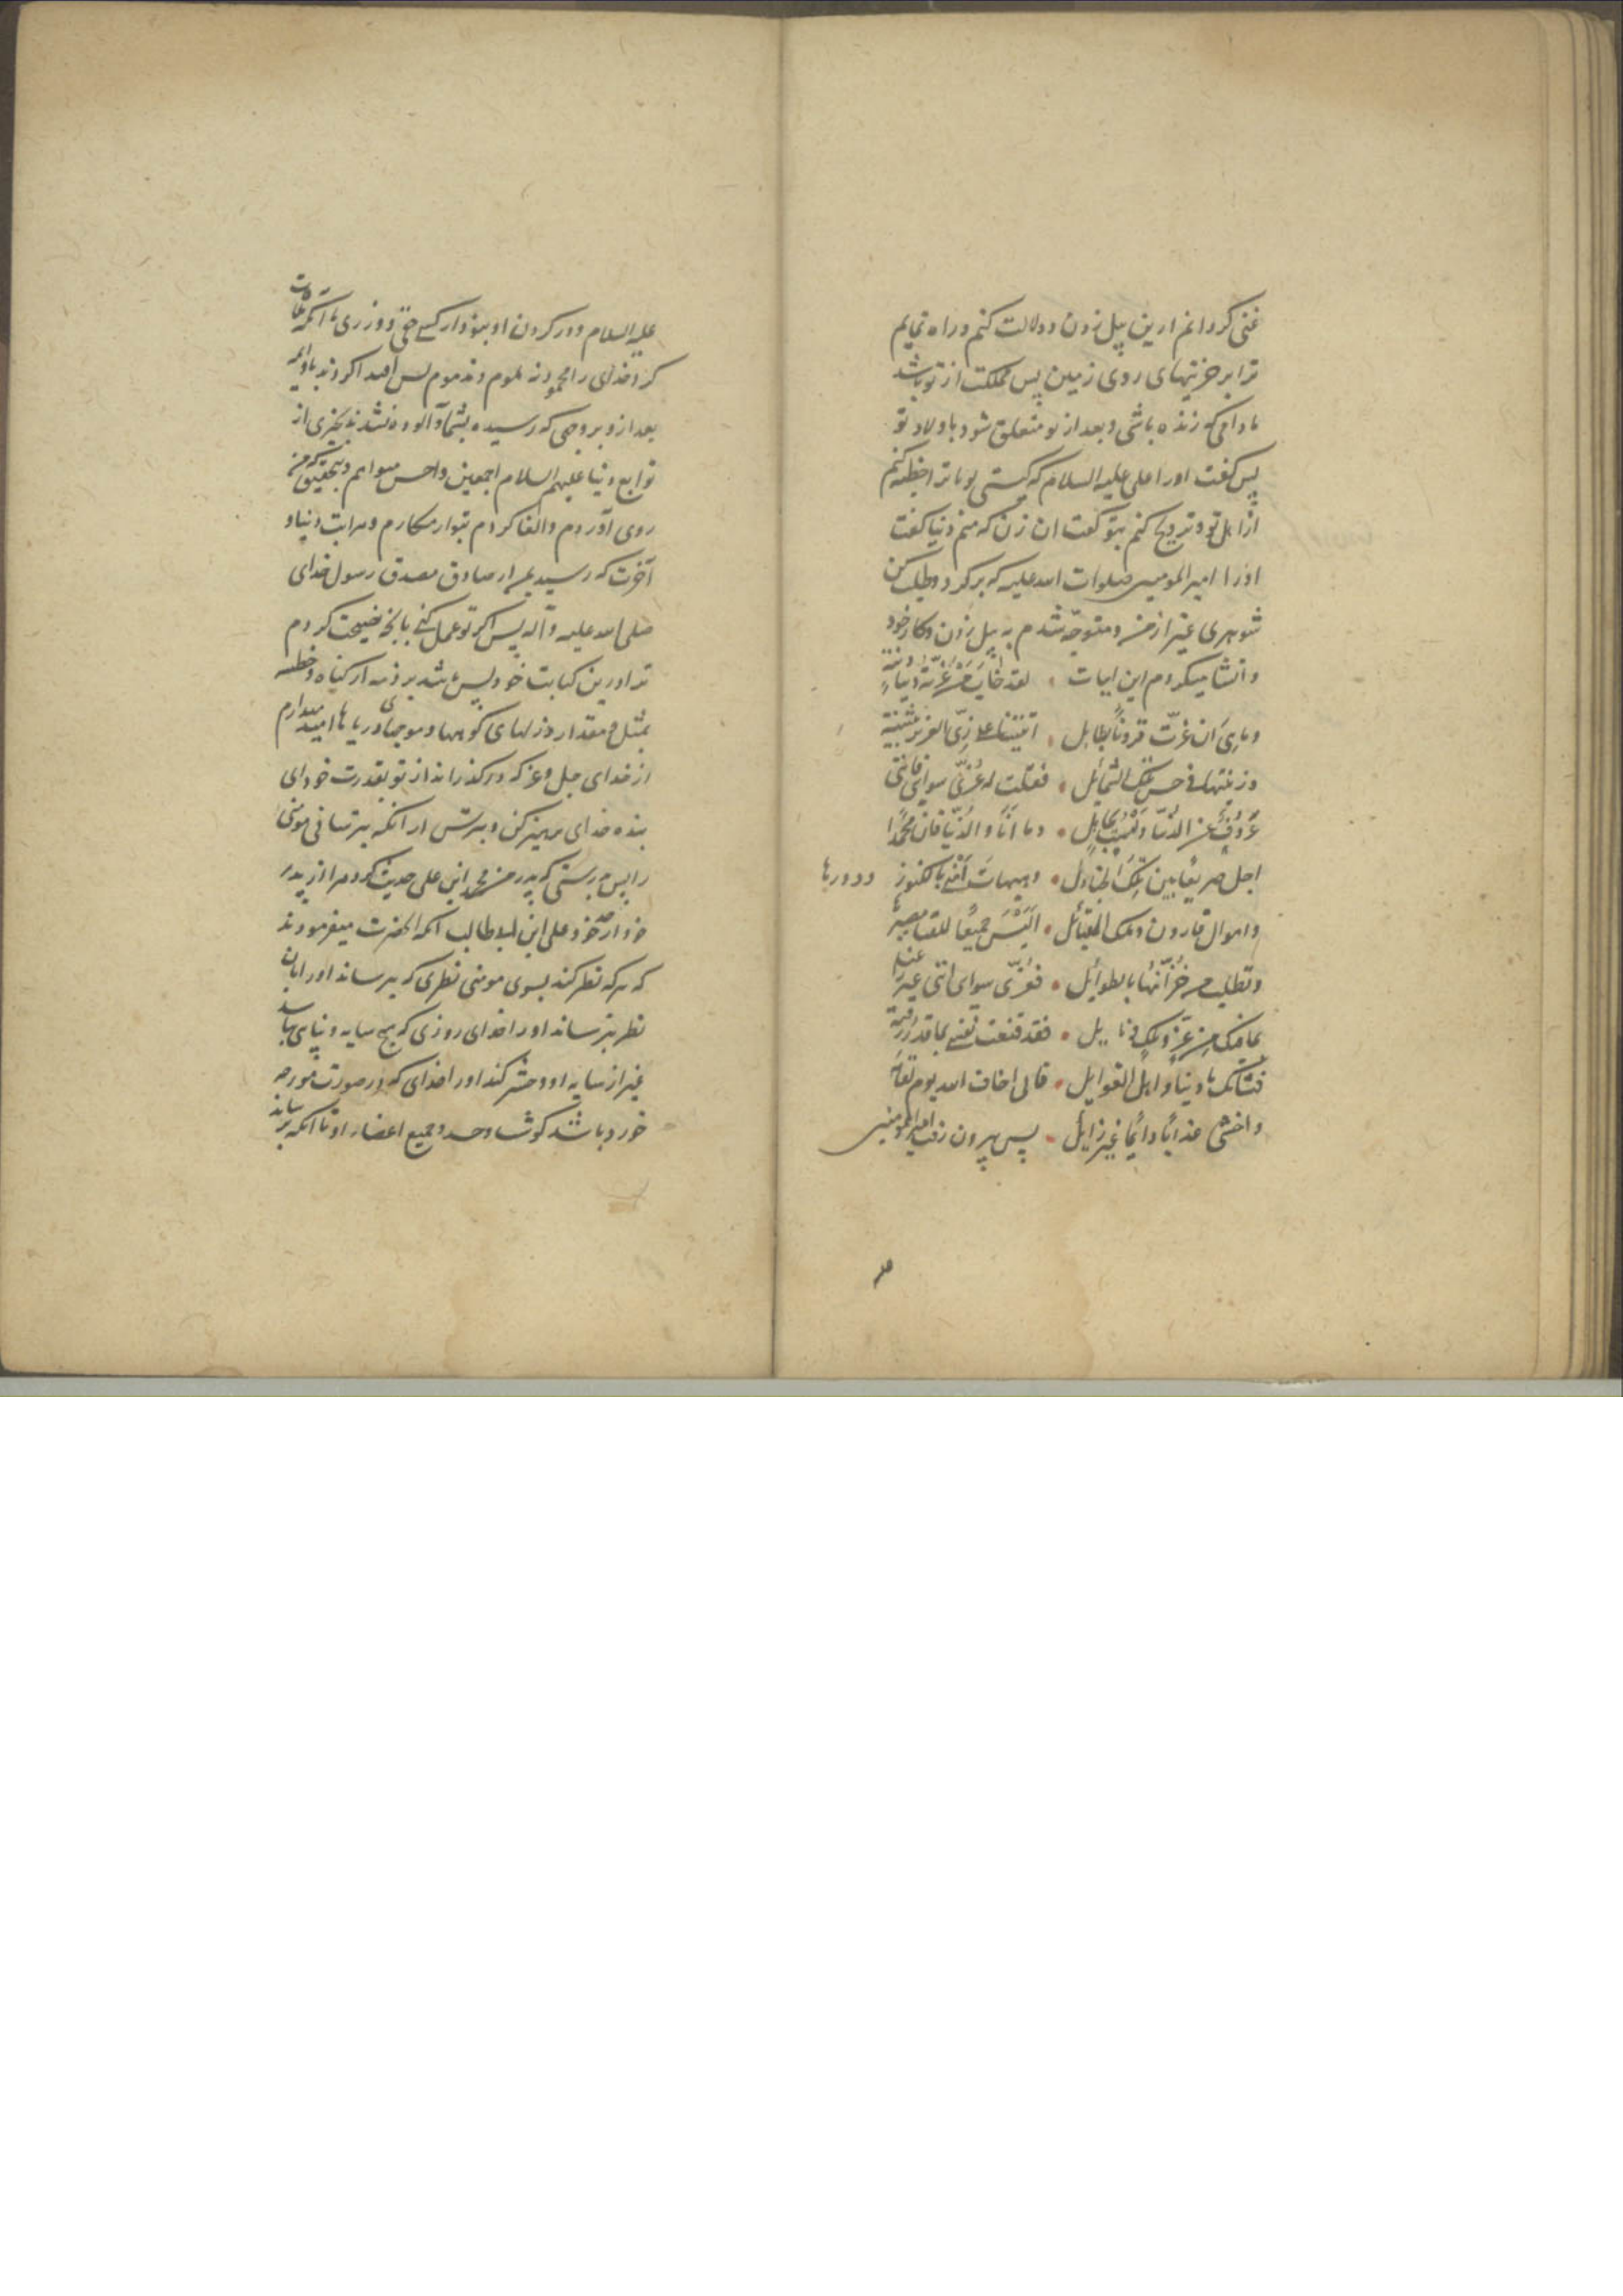 غنی کردانم ازین بیل زدن و دلالت کنم و راه نمایم
ترا بر خزینهای روی زمین پس مملکت از تو باشد
مادامی که زنده باشی و بعد از تو متعلق شود باولاد تو
پس گفت او را علی علیه السلام که کیستی تو تا ترا خطبه کنم
از اهل تو و تزویج کنم بتو گفت ان زن که منم دنیا گفت
او را امیر المومنین صلوات الله علیه که برکرد و طلب کن
شوهری غیر از من و متوجه شدم به بیل زدن و کار خود
و انشا میکردم این ابیات لقد خاب من غرته دنیا دنیة
و ما هی ان غرت قرونا بطایل اتتنا علی زی العزیز بثینة
و زینتها فی حسن تلک الشمائل فقلت لها غری سوای فاننی
عزوف عن الدنیا و لست بجاهل و ما انا و الدنیا فان محمدا
اجل صریعا بین تلک الجنادل و هیهات اتتنی بالکنوز و دورها
و اموال قارون و ملک القبائل الیس جمیعا للفنا مصیرها
و تطلب من خزانها بالطوائل فغری سوای اننی غیر
بما فیک من عز و ملک و نایل فقد قنعت نفسی بما قد رزقته
فشانک یا دنیا و اهل الغوایل فانی اخاف الله یوم لقائه
و اخشی عذابا دائما غیر زایل پس بیرون رفت امیر المومنین
علیه السلام و در کردن او نبود از کسی حقی و وزری تا انکه ملاقات
کرد خدای را محمود نه ملوم و نه مذموم پس اقتدا کردند باو ائمه
بعد ازو بر وجهی که رسیده بشما و آلوده نشدند بچیزی از
توابع دنیا علیهم السلام اجمعین و احسن مثواهم و بتحقیق که من
روی آوردم و القا کردم بتو از مکارم و مراتب دنیا و
آخرت که رسید بمن از صادق مصدق رسول خدای
صلی الله علیه و آله پس اکر تو عمل کنی بانچه نصیحت کردم
ترا درین کتابت خود پس باشد بر ذمه از کناه و خطیه
بمثل و مقدار وزنهای کوهها و موجهای دریاها امید میدارم
از خدای جل و عز که درکذراند از تو بقدرت خود ای
بنده خدای پرهیز کن و بترس از انکه بترسانی مومنی
را پس بدرستی که پدر من محمد ابن علی حدیث کرد مرا از پدر
خود از جد خود علی ابن ابیطالب انکه انحضرت میفرمودند
که هر که نظر کند بسوی مومنی نظری که بترساند او را بان
نظر بترساند او را خدای روزی که هیچ سایه و پناهی نباشد
غیر از سایه او و حشر کند او را خدای که در صورت مورچه
خورد باشد کوشت و جسد و جمیع اعضاء او تا انکه برساند